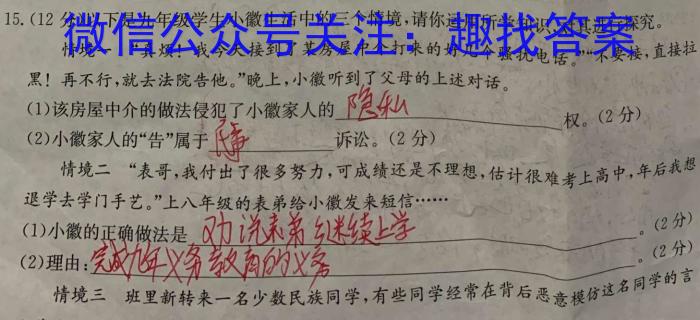 15.(12分)以下是九年级学生小徽生活中的三个情境,请你运用所学知识对其进行探究。
微信公众号关注:趣找答案
情境一 "真烦!我今天接到了某房屋中介打来的好几个骚扰电话。""不要接,直接拉
黑!再不行,就去法院告他。"晚上,小徽听到了父母的上述对话。
(1)该房屋中介的做法侵犯了小徽家人的 隐私 权。(2分)
(2)小徽家人的"告"属于 民事 诉讼。(2分)
情境二 "表哥,我付出了很多努力,可成绩还是不理想,估计很难考上高中,年后我想
退学去学门手艺。"上八年级的表弟给小徽发来短信……
(1)小徽的正确做法是 劝说表弟继续上学 。(2分)
(2)理由:完成九年义务教育的义务 。(2分)
情境三 班里新转来一名少数民族同学,有些同学经常在背后恶意模仿这名同学的言